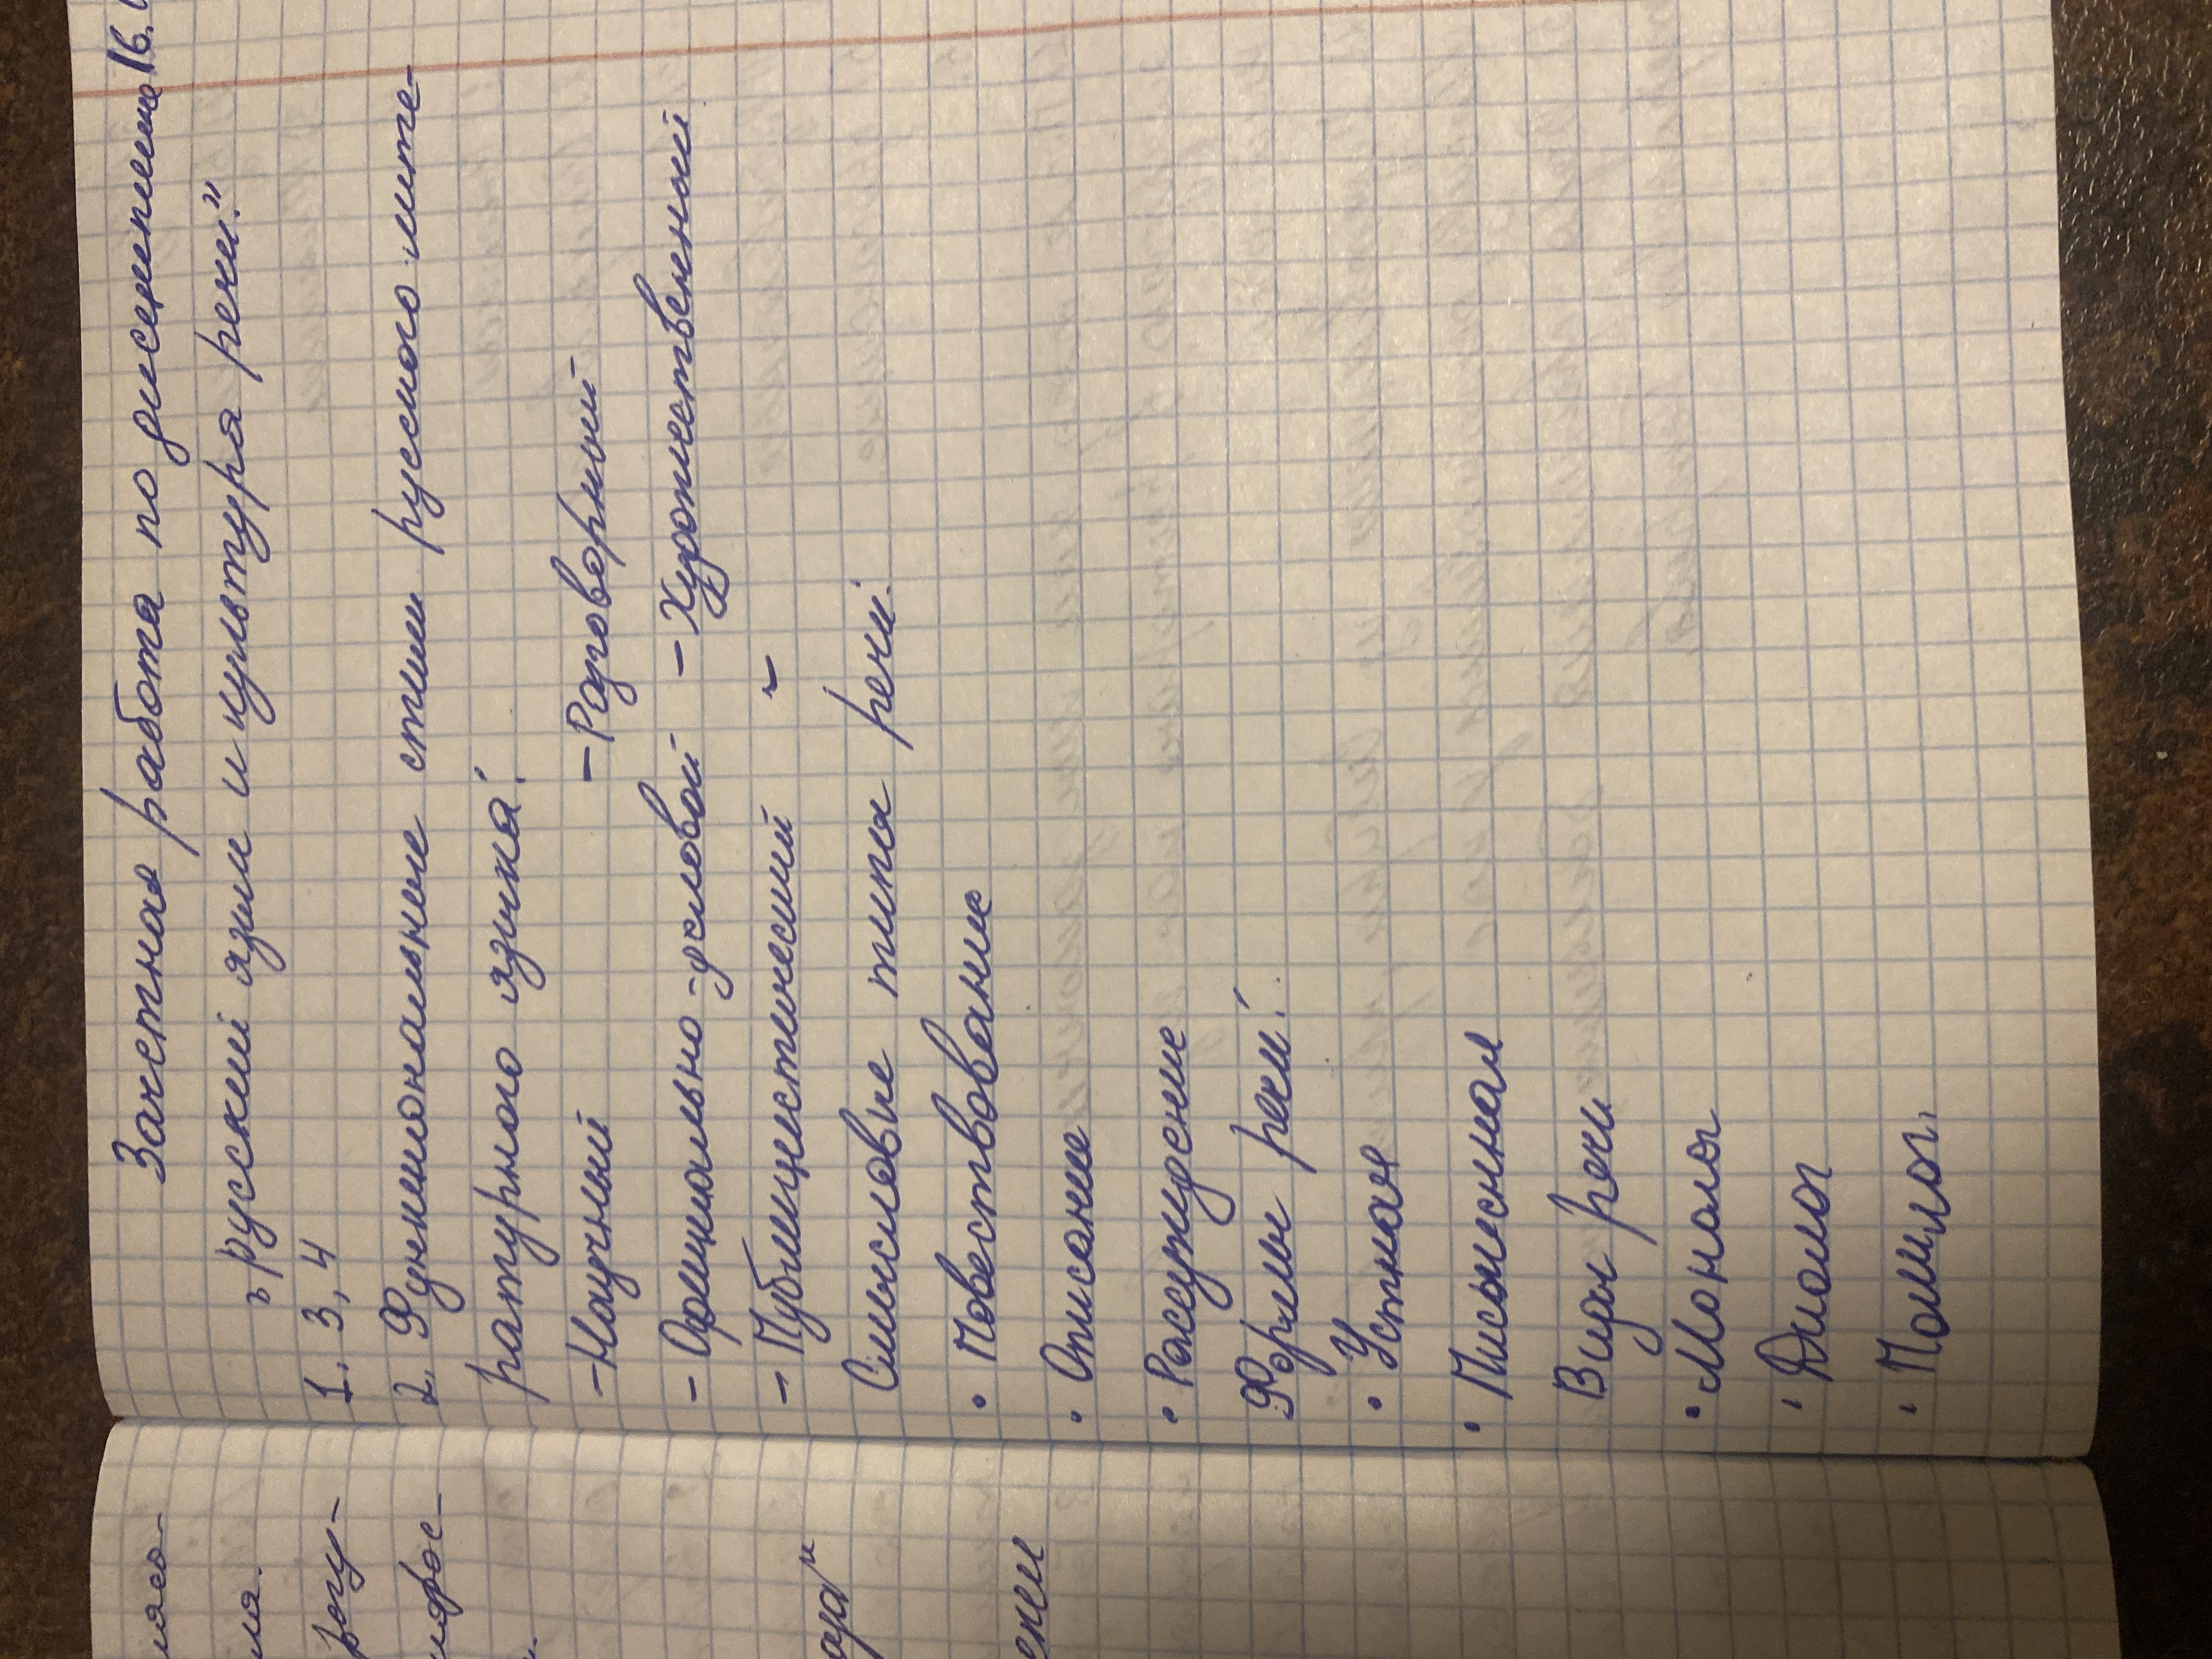 Зачетная работа по дисциплине 16.
„Русский язык и культура речи."
1. 3, 4
2. Функциональные стили русского лите-
ратурного языка:
- Научный - Разговорный
- Официально-деловой - Художественный
- Публицистический
Смысловые типы речи:
• Повествование
• Описание
• Рассуждение
Формы речи:
• Устная
• Письменная
Виды речи
• Монолог
• Диалог
• Полилог.